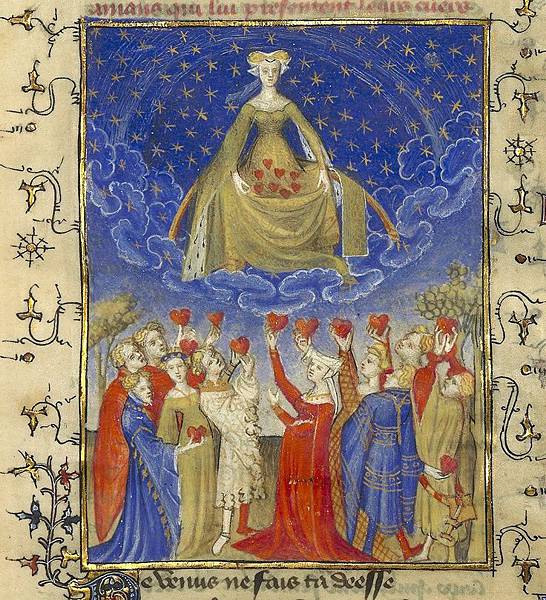 amans qui lui presentent leurs cuers
De venus ne fais ta deesse